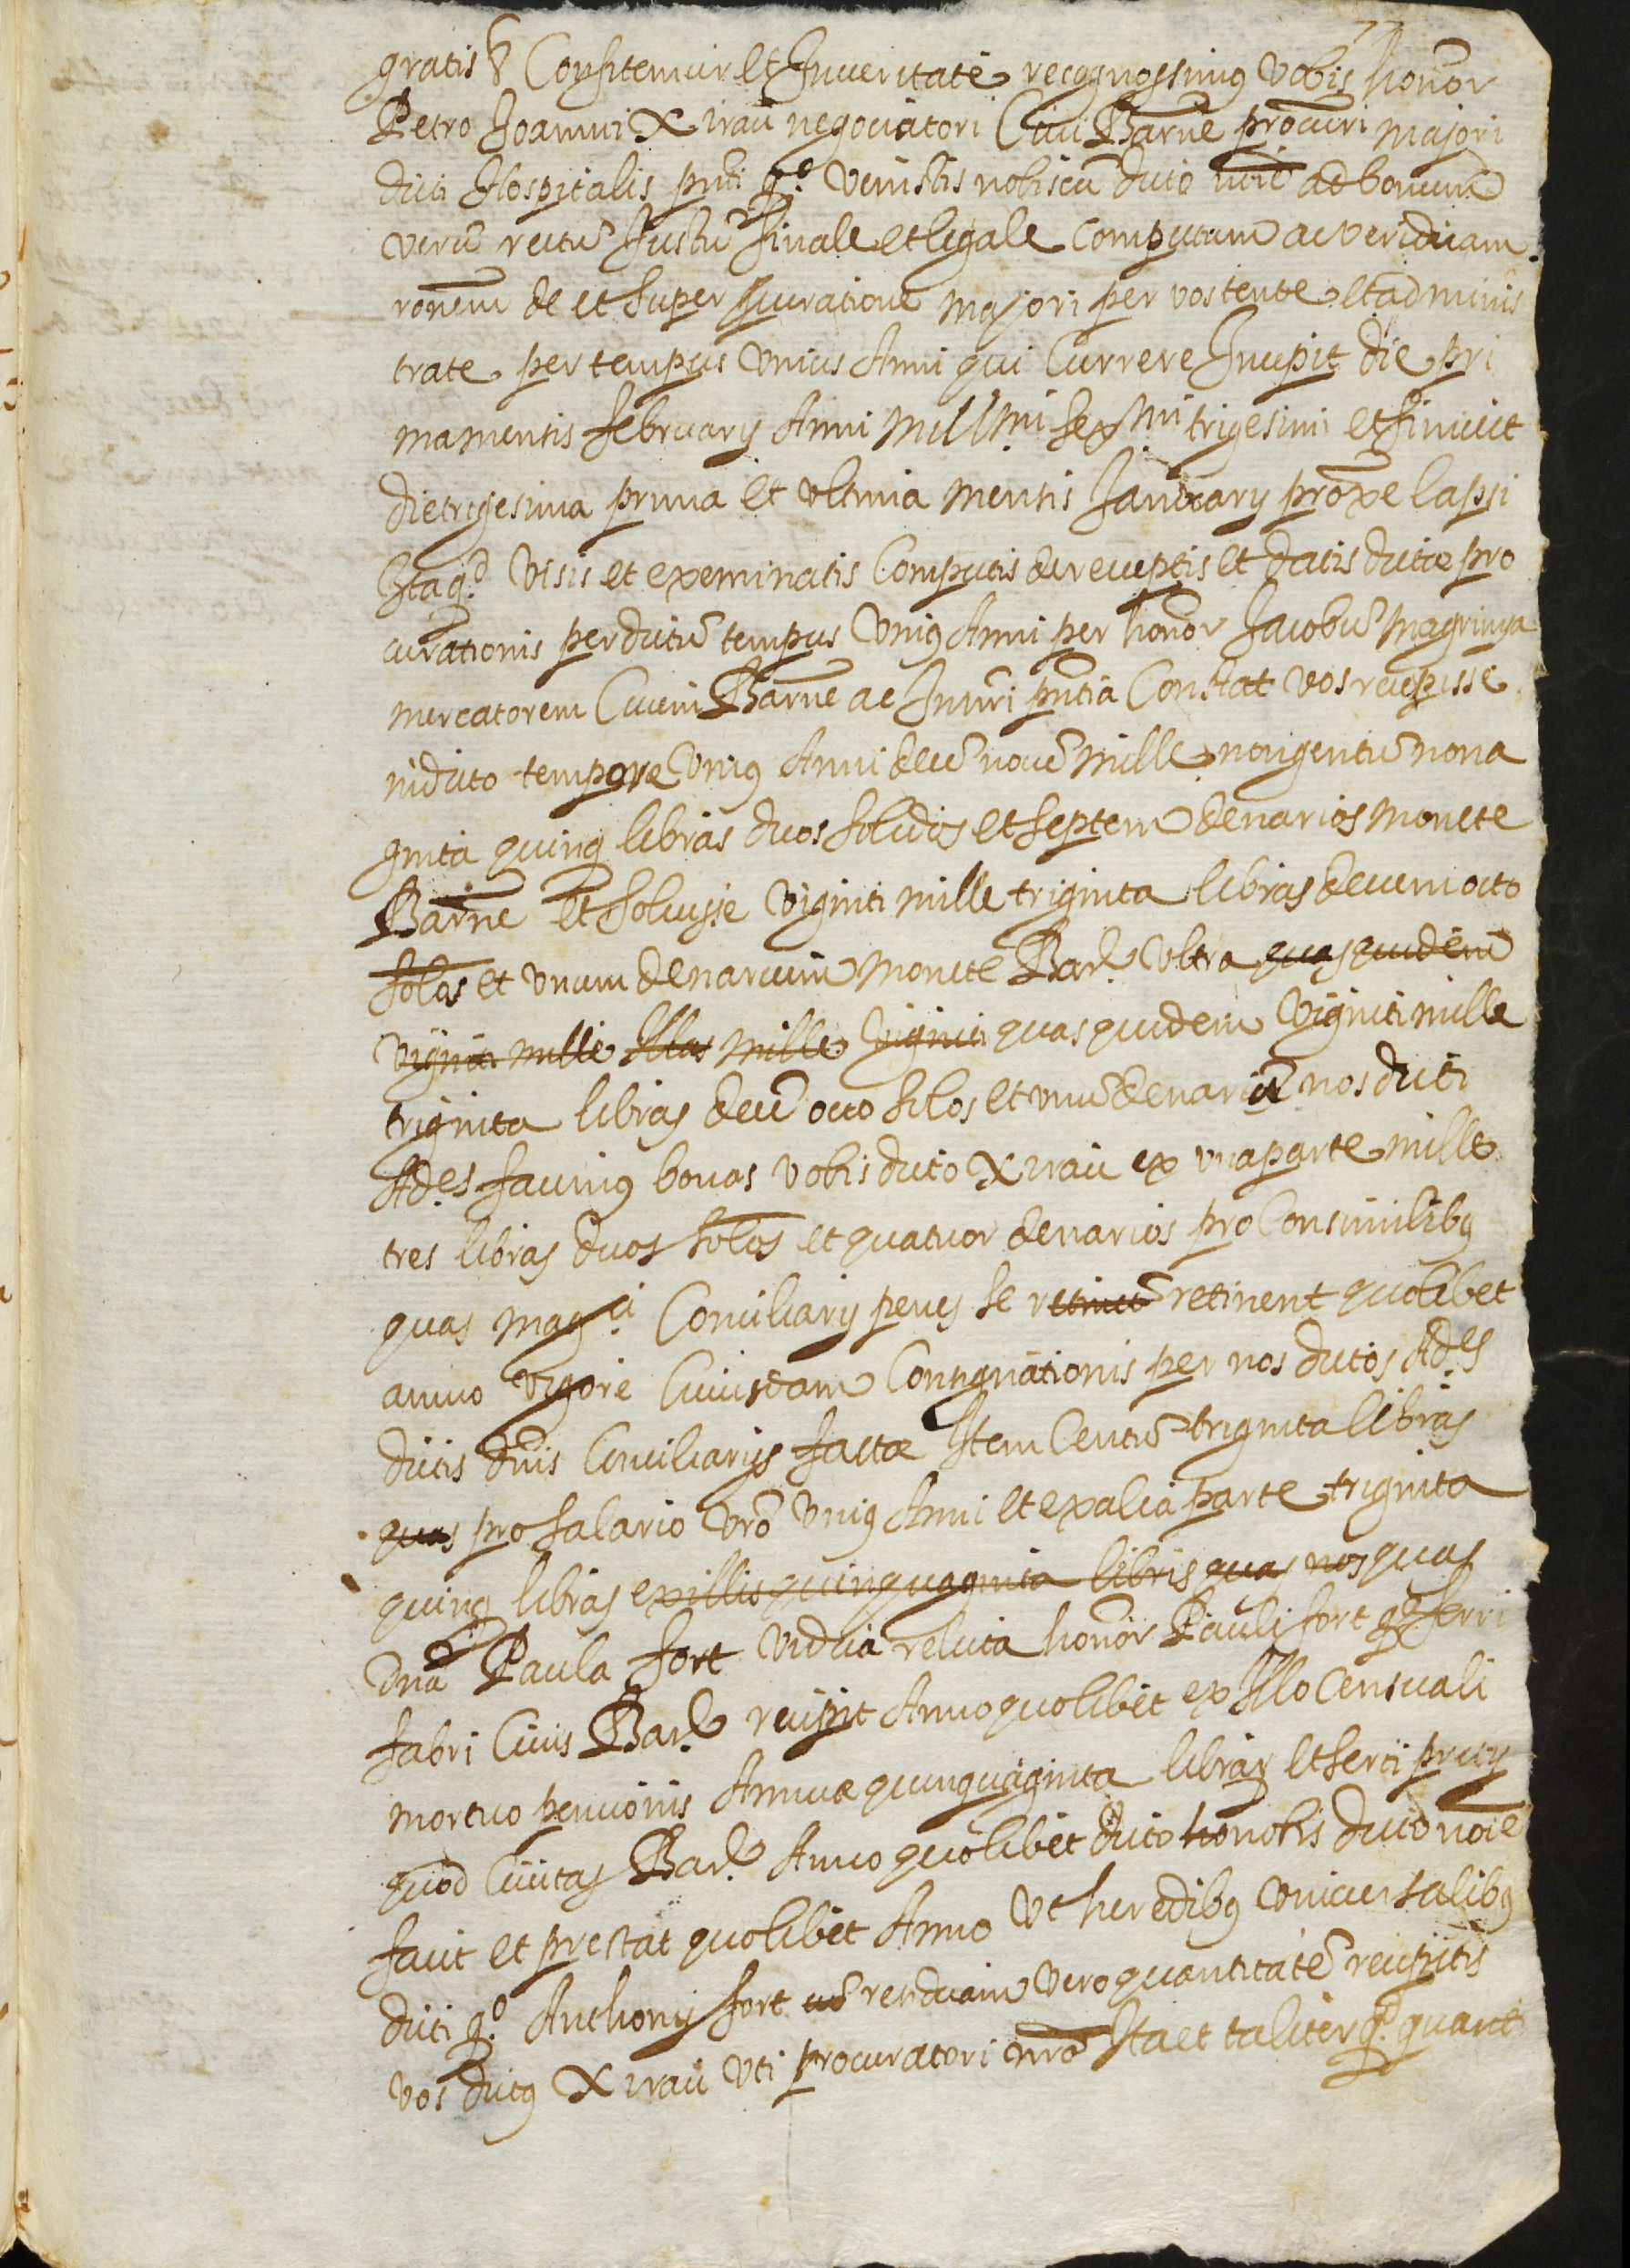 77
gratis & Confitemur et In veritate recognossimus vobis honor
Petro Joanni Xirau negociatori Civi Barne procuri majori
dicti Hospitalis pnti qd venistis nobiscu dicto noie ad bonum
veru rectu Justu finale et legale computum ac veridicam
ronem de et super procuratione majori per vos tente et adminis
trate per tempus unius Anni qui Currere Incepit die pri
ma mentis february Anni Mill.mi sex.mi trigesimi et finivit
die trigesima prima et ultima mentis January proxe lapsi
Ita qd visis et exeminatis Computis de receptis et datis dictae pro
curationis per dictu tempus unius Anni per honor Jacobu magrinya
mercatorem Civem Barne ac Inturi pntia Constat vos recepisse
in dicto tempore unius Anni decem novem mille nongentu nona
ginta quinq libras duos solidos et septem denarios monete
Barne et solvisse viginti mille triginta libras decem octo
solos et unum denarium monete Bar. ultra quas quidem
viginti mille illas mille viginti quas quidem viginti mille
triginta libras dece octo solos et unu denariu nos dicti
Ad.es facimus bonas vobis dicto Xirau ex una parte mille
tres libras duos solos et quatuor denarios pro Consimilibus
quas mag.ci Conciliarij penes se retinent quolibet
anno vigore Cuiusdam Consignationis per nos dictos Ad.es
dictis dnis Conciliarijs factae Item Centu triginta libras
quas pro salario vro unius Anni et ex alia parte triginta
quinq libras ex illis quinquaginta libris quas nos quas
dna Paula fort vidua relicta honor Pauli fort qo ferri
fabri Civis Bar. recipit Anno quolibet ex Illo Censuali
mortuo pencionis Annuae quinquaginta libras et serti precij
quod Civitas Bar. Anno quolibet dicto ho nobis dicto noie
facit et prestat quolibet Anno ut heredibus universalibus
dicti qo Anthonij fort residuam vero quantitate recepitis
vos dictus Xirau uti procuratori nro Ita et taliter qd quant